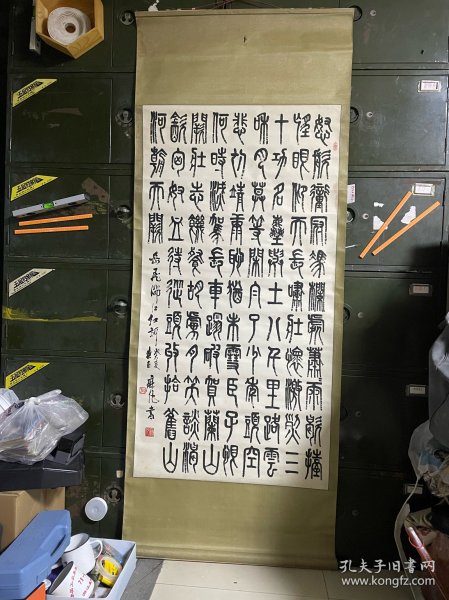 怒髮衝冠憑欄處瀟雨歇擡
望眼仰天長嘯壯懷激烈三
十功名塵與土八千里路雲
和月莫等閒白了少年頭空
悲切靖康恥猶未雪臣子恨
何時滅駕長車踏破賀蘭山
闕壯志飢餐胡虜肉笑談渴
飲匈奴血待從頭收拾舊山
河朝天闕
岳飛滿江紅詞
書
孔夫子旧书网
www.kongfz.com